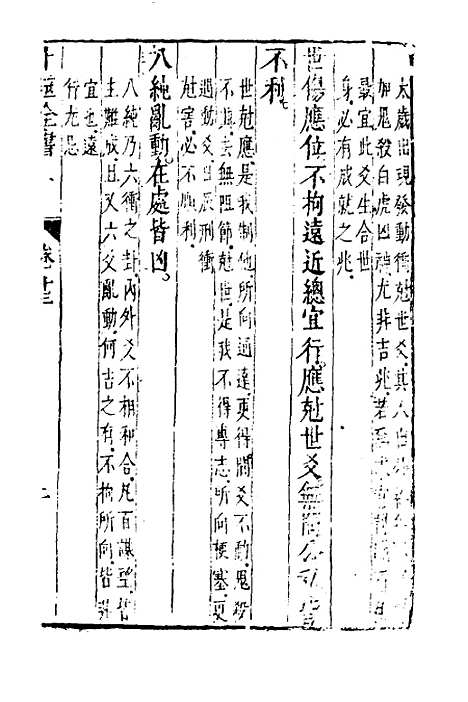 太歲出現發動衝尅世爻其人白
加鬼殺白虎凶神尤非吉兆若
最宜此爻生合世
身必有成就之兆
世傷應位不拘遠近總宜行應尅世爻無問公私皆
不利
世尅應是我制他所向通達更得間爻不動鬼殺
不興去無阻節尅世是我不得專志所向梗塞更
遇動爻日辰刑衝
尅害必不順利
八純亂動在處皆凶
八純乃六衝之卦內外爻不相和合凡百謀望皆
主難成且又六爻亂動何吉之有不拘所向皆非
宜也遠
行尤忌
全書
卷十三